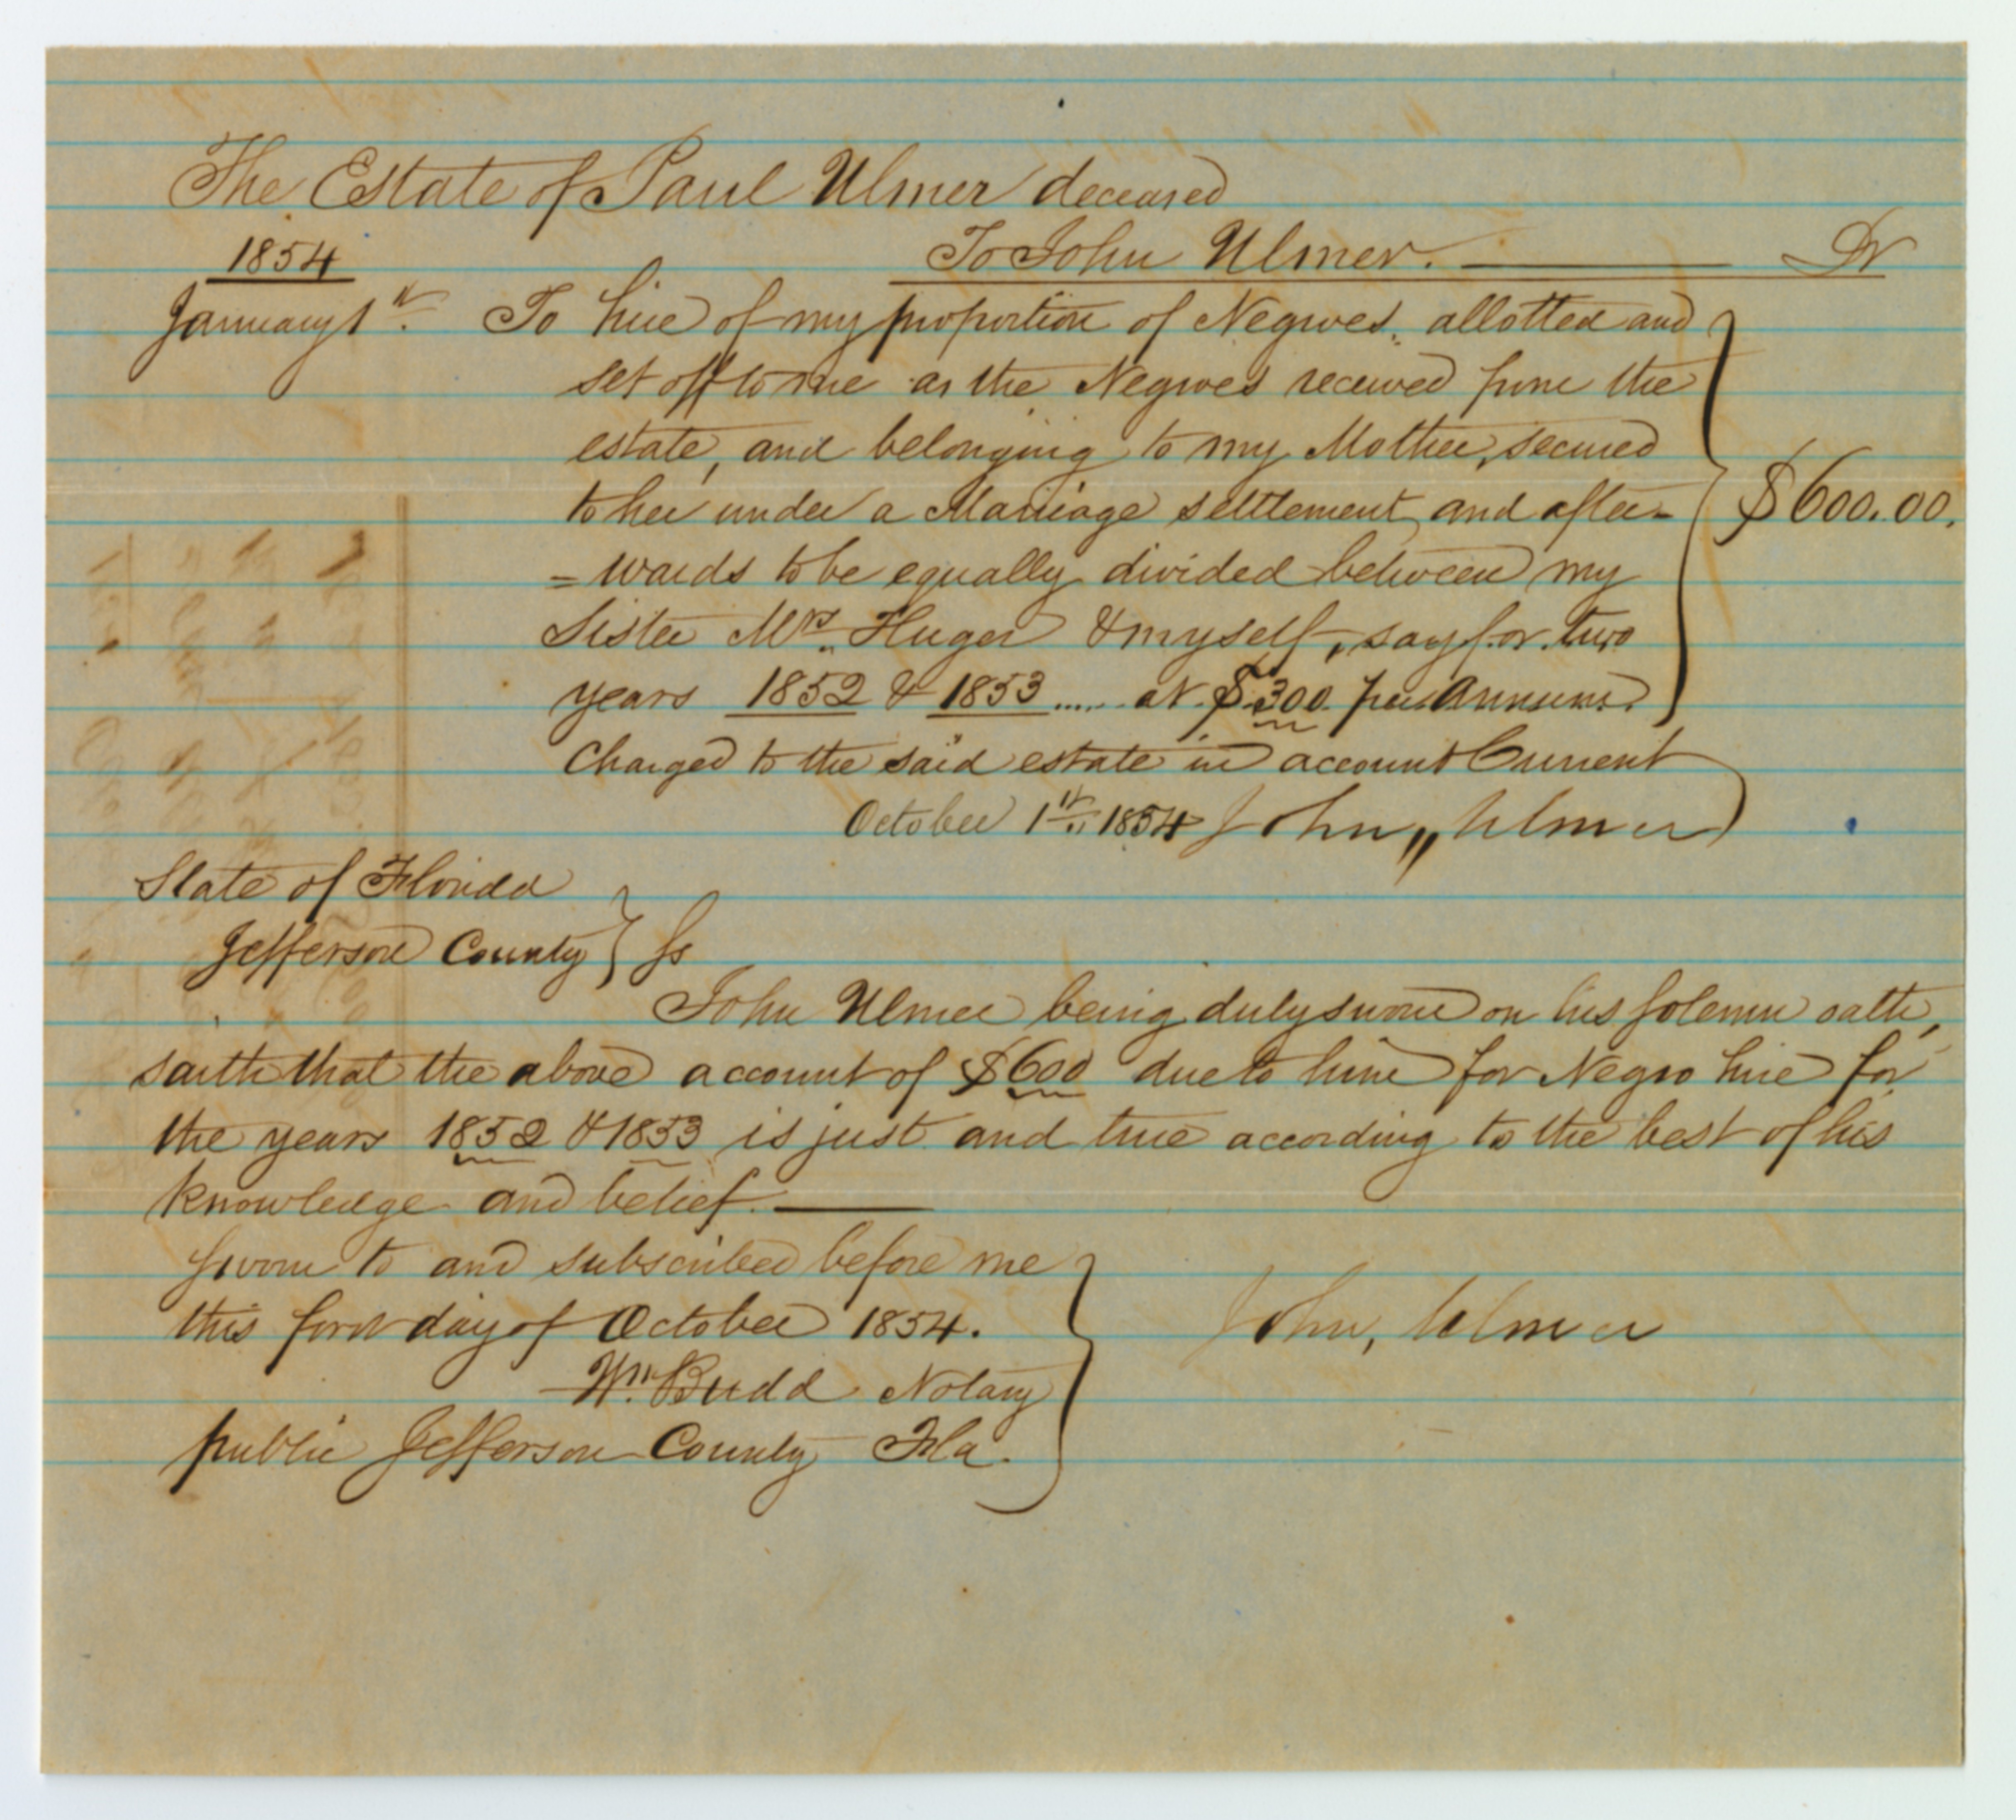 The Estate of Paul Ulmer deceased
1854 To John Ulmer. Dr
January 1st. To hire of my proportion of Negroes, allotted and
set off to me as the Negroes received from the
estate, and belonging to my Mother, secured
to her under a Marriage settlement, and after-
=wards to be equally divided between my
Sister Mrs. Huger & myself, say for two
years 1852 & 1853 ..... at $300 per Annum.
$600.00.
Charged to the said estate in account Current
October 1st 1854 John,, Ulmer
State of Florida
Jefferson County } Ss
John Ulmer being duly sworn on his solemn oath,
saith that the above account of $600 due to him for Negro hire for
the years 1852 & 1853 is just and true according to the best of his
knowledge and belief.
Sworn to and subscribed before me
this first day of October 1854. John, Ulmer
Wm. Budd Notary
public Jefferson County Fla.